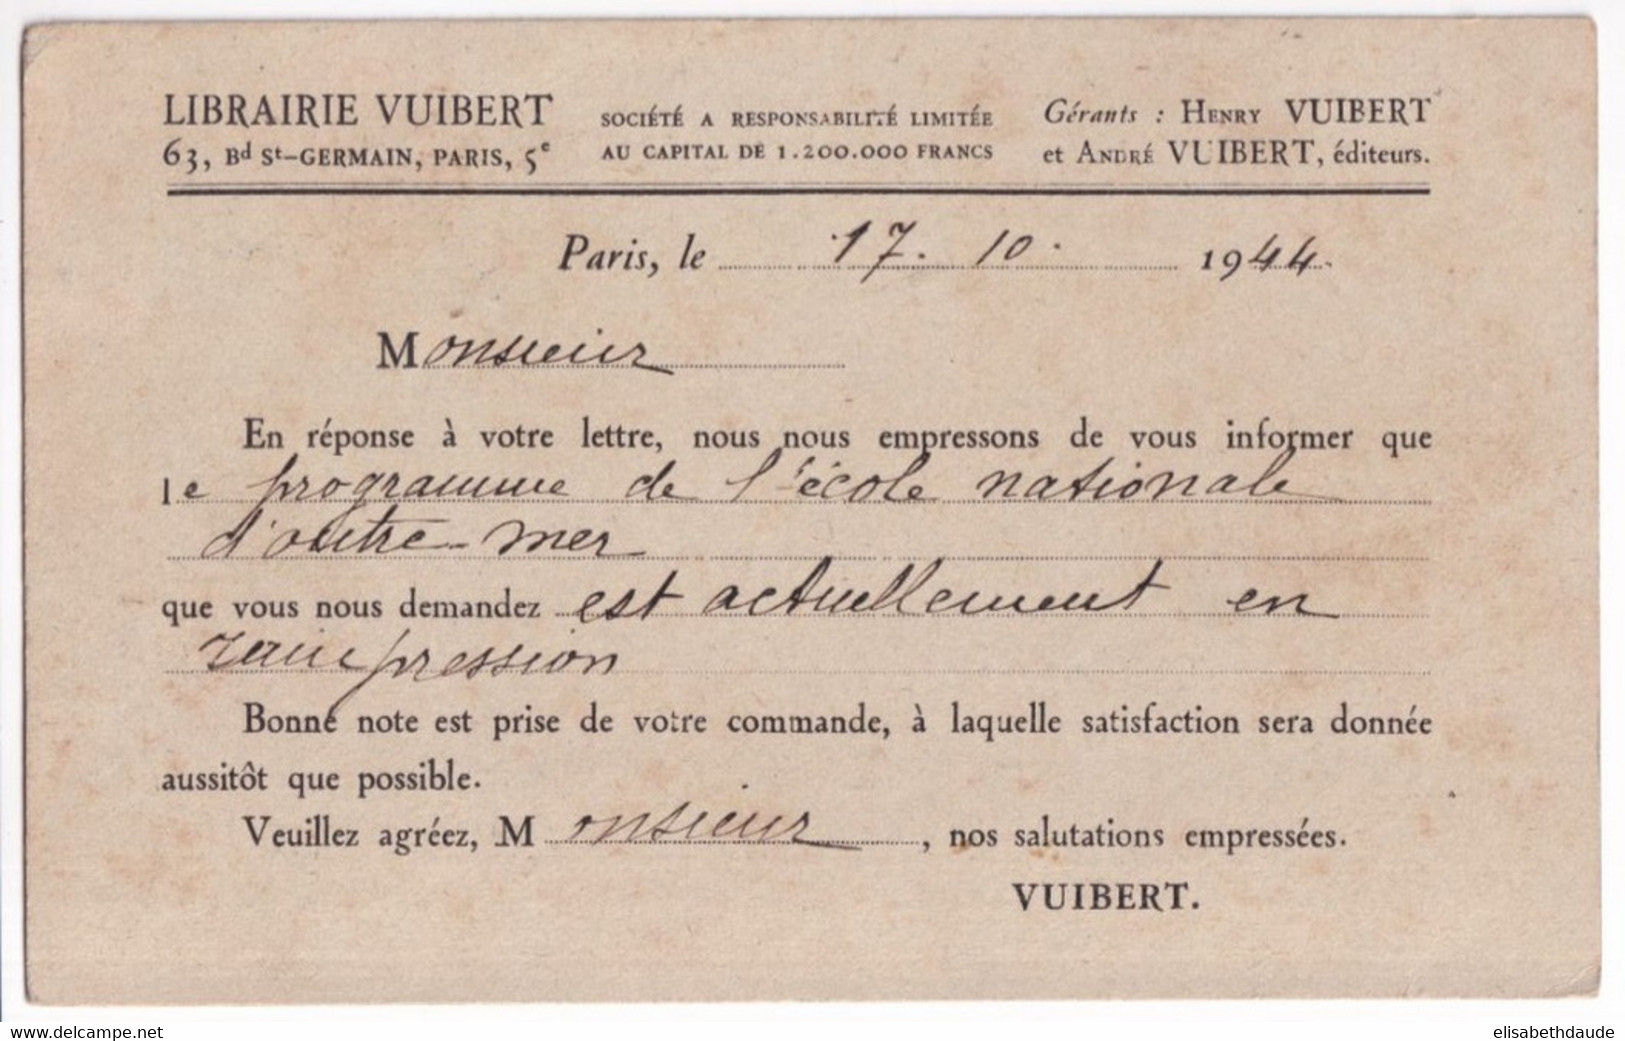 LIBRAIRIE VUIBERT
63, Bd St-GERMAIN, PARIS, 5e
SOCIÉTÉ A RESPONSABILITÉ LIMITÉE
AU CAPITAL DE 1.200.000 FRANCS
Gérants : HENRY VUIBERT
et ANDRÉ VUIBERT, éditeurs.
Paris, le 17. 10. 1944.
Monsieur
En réponse à votre lettre, nous nous empressons de vous informer que
le programme de l'école nationale
d'outre-mer
que vous nous demandez est actuellement en
réimpression
Bonne note est prise de votre commande, à laquelle satisfaction sera donnée
aussitôt que possible.
Veuillez agréez, Monsieur, nos salutations empressées.
VUIBERT.
www.delcampe.net
elisabethdaude